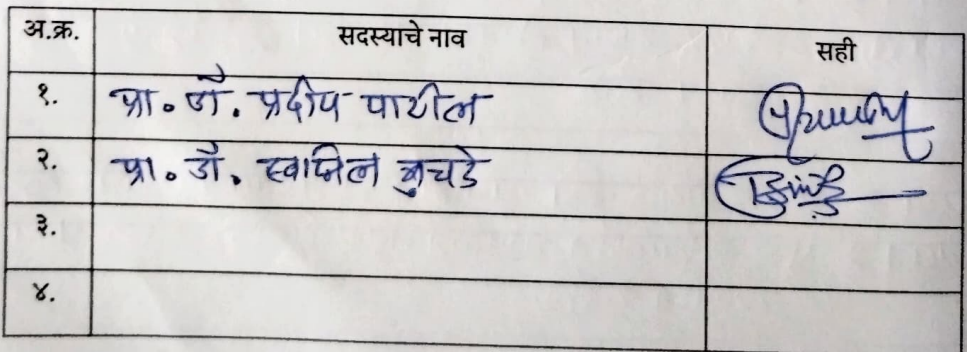 अ.क्र. सदस्याचे नाव सही
१. प्रा. डॉ. प्रदीप पाटील
२. प्रा. डॉ. स्वप्निल बुचडे
३.
४.